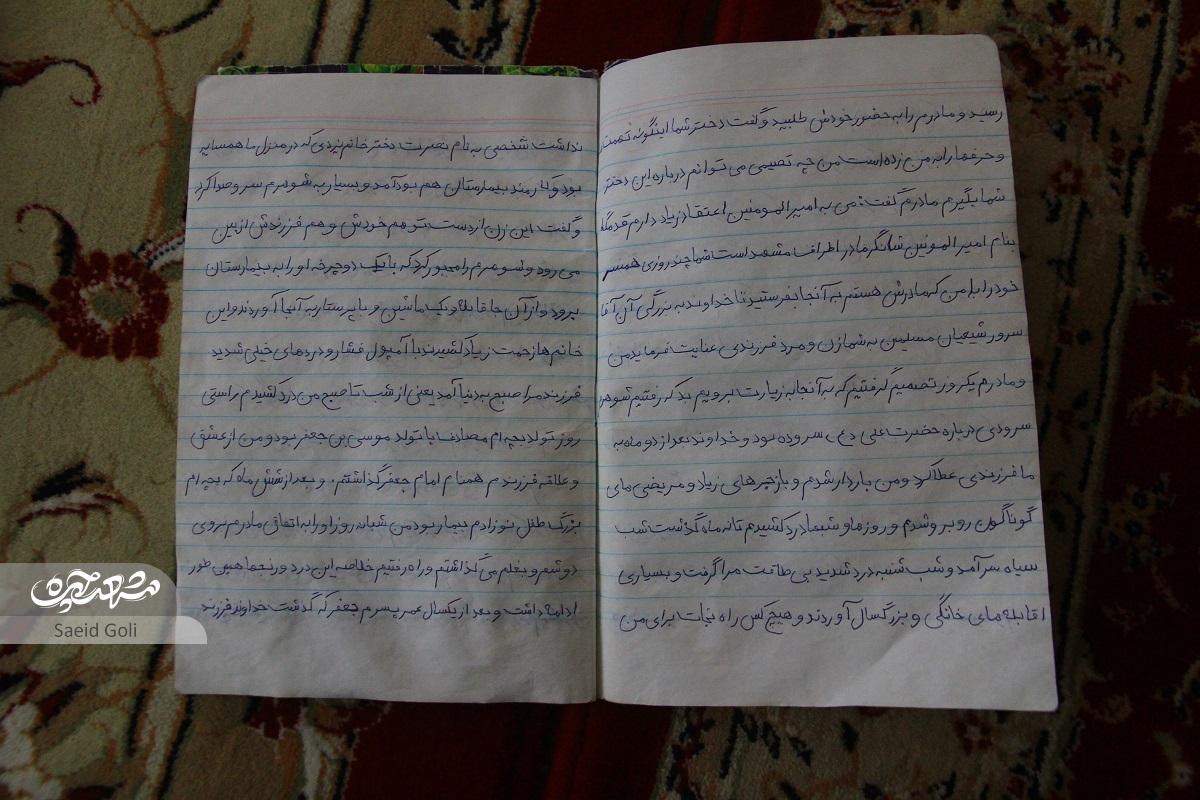 رسید و مادرم را به حضور خودش طلبید و گفت دختر شما اینگونه تهمت
و حرفها را به من زده است من چه تصمیمی می توانم درباره این دختر
شما بگیرم مادرم گفت: من به امیرالمومنین اعتقاد زیاد دارم قدمگاه
بنام امیرالمونین در اطراف مشهد است شما چند روزی همسر
خود را با من که مادرش هستم به آنجا بفرستید تا خداوند به بزرگی آن آقا
سرور شیعیان مسلمین به شما زن و مرد فرزندی عنایت فرماید من
و مادرم یکروز تصمیم گرفتیم که به آنجا به زیارت برویم که رفتیم شوهرم
سرودی درباره حضرت علی (ع) سروده بود و خداوند بعد از دو ماه به
ما فرزندی عطا کرد و من باردار شدم و با زجرهای زیاد و مریضی های
گوناگون روبرو شدم و روزها و شبها درد کشیدم تا نه ماه گذشت شب
سیاه سرآمد و شب شنبه درد شدید بی طاقت مرا گرفت و بسیاری
قابله های خانگی و بزرگسال آوردند و هیچ کس راه نجات برای من
نداشت شخصی به نام نصرت دختر خانم یزدی که در منزل ما همسایه
بود و کارمند بیمارستان هم بود آمد و بسیار به شوهرم سر و صدا کرد
و گفت: این زن از دست تو هم خودش و هم فرزندش از بین
می رود و شوهرم را مجبور کرد که با یک دوچرخه او را به بیمارستان
برود و از آن جا قابله و یک ماشین و با پرستار به آنجا آوردند و این
خانم ها زحمت زیاد کشیدند با آمپول فشار و دردهای خیلی شدید
فرزند مرا صبح به دنیا آمد یعنی از شب تا صبح من درد کشیدم براستی
روز تولد بچه ام مصادف با تولد موسی بن جعفر بود و من از عشق
و علاقه فرزندم همنام امام جعفر گذاشتم. و بعد از شش ماه که بچه ام
بزرگ طفل نوزادم بیمار بود من شبانه روز او را به اتفاق مادرم بروی
دوشم و بغلم می گذاشتم و راه رفتیم خلاصه این درد و رنجها همین طور
ادامه داشت و بعد از یکسال عمر پسرم جعفر که گذشت خداوند فرزند
شهرآرا
Saeid Goli